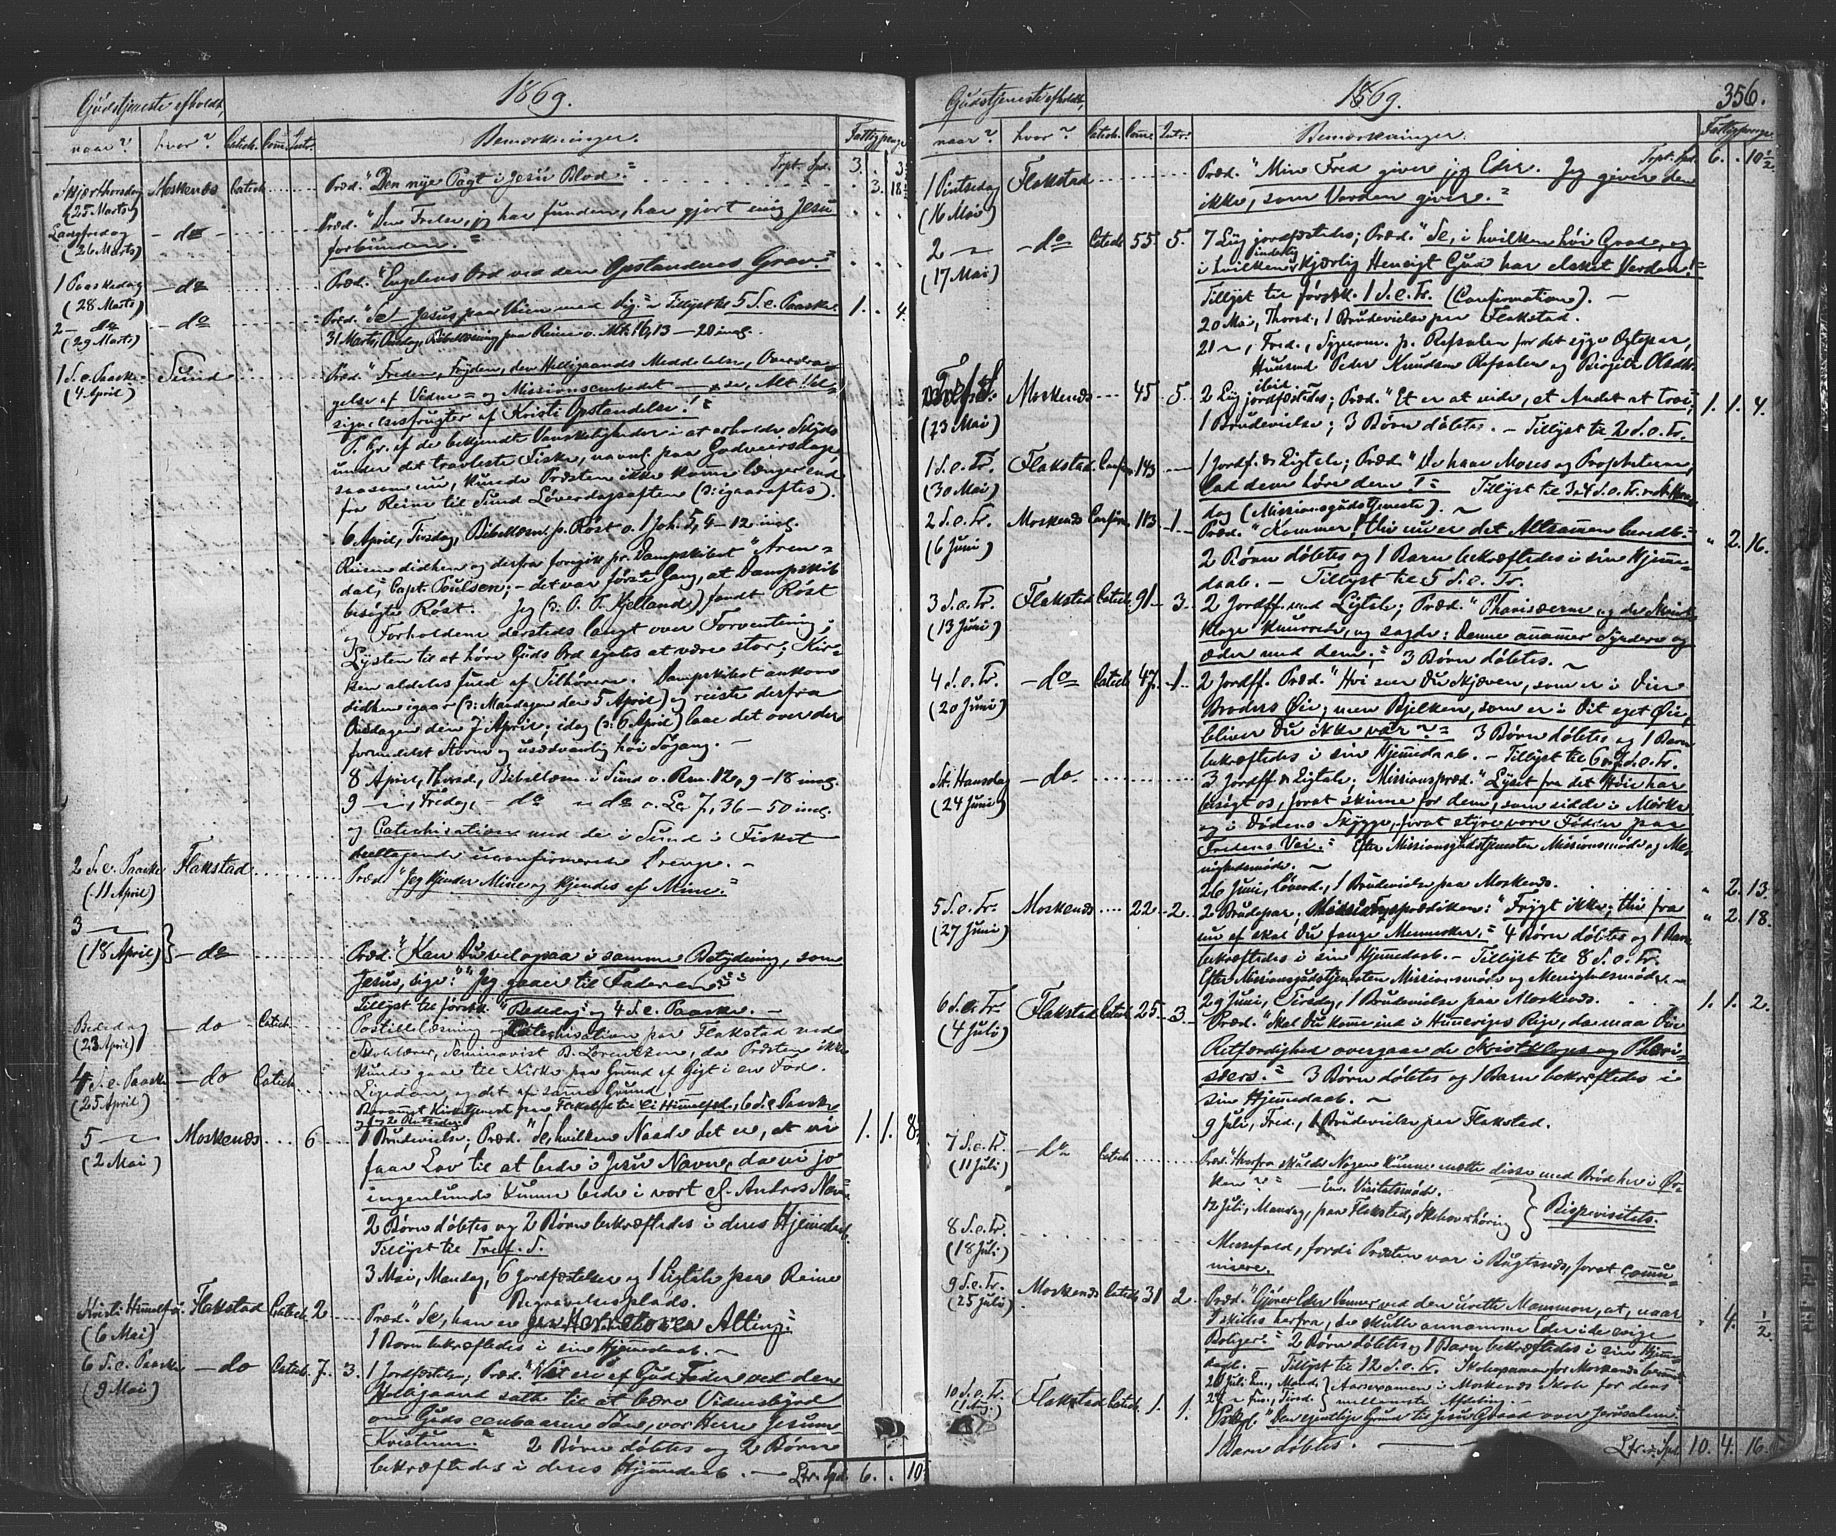 Gudstjeneste afholdt,
1869.
naar? hvor? Catech. Com. Intr. Bemærkninger. Fattigpenge
Tspt. Spd. 3. . 3
Skjærthorsdag Moskenæs Catech. Præd. "Den nye Pagt i Jesu Blod." 3. 18
(25 Marts)
Langfredag — do — Præd. "Den Frelse, jeg har funden, har gjort mig Jesu
(26 Marts) forbunden."
1 Paaskedag — do Præd. "Engelens Ord ved den Opstandnes Grav."
(28 Marts)
2 — do — do Præd. "Se Jesus paa Veien med dig" – Tillyst til 5 S. e. Paaske. 1. . 4.
(29 Marts) 31 Marts, Onsdag, Bibellæsning paa Reine o. Mk. 16, 13 – 20 incl.
1 S. e. Paaske Sund Præd. "Freden, Frygten, den Helligaands Meddelelse,
(4 April) gelse af Vidne= og Missionsembedet — se der, Alt Vel=
signelsesfrugter af Kristi Opstandelse!"
P. Gr. af de bekjendte Vanskeligheder i at erholde Skyds
under det travleste Fiske, navnl. paa Godveirsdage
saasom nu, kunde Præsten ikke komme længer end
fra Reine til Sund Løverdagsaften (ɔ: igaaraftes).
6 April, Tirsdag, Bibellæsn. p. Røst o. 1 Joh. 5, 4 – 12 incl.
Reisen didhen og derfra foregik pr. Dampskibet "Aren=
dal", Capt. Poulsen; – det var første Gang, at Dampskib
besøgte Røst. Jeg (ɔ: O. T. Kjelland) fandt Røst
og Forholdene dersteds langt over Forventning;
Lysten til at høre Guds Ord syntes at være stor; Kir=
ken aldeles fuld af Tilhørere. Dampskibet ankom
didhen igaar (ɔ: Mandagen den 5 April) og reiste derfra
Onsdagen den 7 April; idag (ɔ: 6 April) laae det over der
formedelst Storm og usædvanlig høi Søgang. —
8 April, Thorsd., Bibellæsn. i Sund o. Rom. 12, 9 – 18 incl.
9 — , Fredag, — do — do o. Lc. 7, 36 – 50 incl.
og Catechisation med de i Sund i Fisket
deeltagende uconfirmerede Drenge. —
2 S. e. Paaske Flakstad Præd. "Jeg kjender Mine og kjendes af Mine."
(11 April)
3 —
(18 April) — do Præd. "Kan Du vel ogsaa i samme Betydning, som
Jesus, sige: "Jeg gaaer til Faderen"?"
Tillyst til førstk. "Bededag" og 4 S. e. Paaske. —
Bededag — do Catech. Postillelæsning og Catechisation paa Flakstad ved
(23 April) Skolelærer, Seminarist B. Lorentzen, da Præsten ikke
4 S. e. Paaske — do Catech. kunde gaae til Kirke paa Grund af Gigt i en Fod.
(25 April) Ligedan og det af samme Grund. —
Berammet Kirketjenest. paa Flakstad til Cti Himmelfd., 6 S. e. Paaske
og 1 og 2 Pintsedag.
5 — Moskenæs 6 1 Brudevielse; Præd. "Se, hvilken Naade det er, at vi 1. 1. 8
(2 Mai) faae Lov til at bede i Jesu Navn, da vi jo
ingenlunde kunne bede i vort ell. Andres Navn."
2 Børn døbtes og 2 Børn bekræftedes i deres Hjemmedaab.
Tillyst til Tref. S.
3 Mai, Mandag, 6 Jordfæstelser og 1 Ligtale paa Reine
Begravelsesplads.
Kristi Himmelfd. Flakstad Catech. 2 Præd. "Se, han er Jesus Herre over Alting."
(6 Mai) 1 Barn bekræftedes i sin Hjemmedaab. —
6 S. e. Paaske — do Catech. 7. 3. 1 Jordfæstelse; Præd. "Vist ere af Gud Fader ved den
(9 Mai) Helligaand satte til at bære Vidnesbyrd
om Guds eenbaarne Søn, vor Herre Jesum
Kristum." 2 Børn døbtes og 2 Børn
bekræftedes i deres Hjemmedaab. — Ltr. Spd. 6. . 10
Gudstjeneste afholdt,
1869.
356.
naar? hvor? Catech. Com. Intr. Bemærkninger. Fattigpenge.
Tspt. Spd. 6. . 10 1/2
1 Pintsedag Flakstad Præd. "Min Fred giver jeg Eder. Jeg giver den
(16 Mai) ikke, som Verden giver."
2 — — do Catech. 55. 5. 7 Lig jordfæstedes; Præd. "Se, i hvilken høi Grad, og
(17 Mai) i hvilken inderlig kjærlig Hensigt Gud har elsket Verden!"
Tillyst til førstk. 1 S. e. Tr. (Confirmation). —
20 Mai, Thorsd., 1 Brudevielse paa Flakstad.
21 —, Fred., Sygecom. p. Refsalen for det syge Ægtepar,
Huusmd. Peder Knudsen Refsalen og Birgitte Olsdtr.
ibid.
Tref. S. Moskenæs 45 5. 2 Lig jordfæstedes; Præd. "Et er at vide, et Andet at troe", 1. 1. 4.
(23 Mai) 1 Brudevielse; 3 Børn døbtes. – Tillyst til 2 S. e. Tr.
1 S. e. Tr. Flakstad Confirm. 143 — 1 Jordf. & Ligtale; Præd. "De have Moses og Propheterne,
(30 Mai) lad dem høre dem!" Tillyst til 3 & 4 S. e. Tr.
dag (Missionsgudstjeneste). —
2 S. e. Tr. Moskenæs Confirm. 113 1. Præd. "Kommer, thi nu er det Altsammen beredt." " 2. 16.
(6 Juni) 2 Børn døbtes og 1 Barn bekræftedes i sin Hjemme=
daab. – Tillyst til 5 S. e. Tr.
3 S. e. Tr. Flakstad Catech. 91 3. 2 Jordff. med Ligtale; Præd. "Pharisæerne og de Skrift=
(13 Juni) kloge knurrede, og sagde: Denne annammer Syndere og
æder med dem." 3 Børn døbtes. —
4 S. e. Tr. — do Catech. 47. 1. 2 Jordff. Præd. "Hvi seer Du Skjæven, som er i Din
(20 Juni) Broders Øie; men Bjelken, som er i Dit eget Øie,
bliver Du ikke var?" 3 Børn døbtes og 1 Barn
bekræftedes i sin Hjemmedaab. – Tillyst til 6 S. e. Tr.
St. Hansdag — do 3 Jordff. & Ligtale; Missionspræd. "Lyset fra det Høie har
(24 Juni) besøgt os, forat skinne for dem, som sidde i Mørke
og i Dødens Skygge, forat styre vore Fødder paa
Fredens Vei." Efter Missionsgudstjenesten Missionsmøde og Me=
nighedsmøde. —
26 Juni, Løverd., 1 Brudevielse paa Moskenæs. " 2. 13.
5 S. e. Tr. Moskenæs 22 2. 2 Brudepar; Missionsprædiken: "Frygt ikke; thi fra " 2. 18.
(27 Juni) nu af skal Du fange Mennesker." 4 Børn døbtes og 1 Barn
bekræftedes i sin Hjemmedaab. – Tillyst til 8 S. e. Tr.
Efter Missionsgudstjenesten Missionsmøde og Menighedsmøde. —
29 Juni, Tirsdag, 1 Brudevielse paa Moskenæs.
6 S. e. Tr. Flakstad Catech. 25 3. Præd. "Skal Du komme ind i Himmeriges Rige, da maa Din 1. 1. 2.
(4 Juli) Retfærdighed overgaae de Skriftkloges og Phari=
sæers." 3 Børn døbtes og 1 Barn bekræftedes i
sin Hjemmedaab. —
9 Juli, Fred., 1 Brudevielse paa Flakstad.
7 S. e. Tr. — do Catech. Præd. "Hvorfra skulde Nogen kunne mætte disse med Brød her i Ør=
(11 Juli) ken?" – En Visitatsmøde.
12 Juli, Mandag, paa Flakstad, Skoleoverhøring } Bispevisitats.
8 S. e. Tr. Messefald, fordi Præsten var i Buxnæs, forat commu=
(18 Juli) nicere.
9 S. e. Tr. Moskenæs Catech. 31 2. Præd. "Gjører Eder Venner ved den urette Mammon, at, naar " 4. 1/2
(25 Juli) I skilles herfra, de skulle annamme Eder i de evige
Boliger." 2 Børn døbtes og 1 Barn bekræftedes i sin Hjemme=
daab. – Tillyst til 12 S. e. Tr. Skoleexamen for Moskenæs
26 Juli, Mand. } Aarsexamen i Moskenæs Skole for dens
27 — Tirsd. } mellemste Afdeling. —
10 S. e. Tr. Flakstad Catech. 1. 1. Præd. "Den egentlige Grund til Jesu Graad over Jerusalem."
(1 Aug.) 1 Barn døbtes. — Ltr. Spd. 10. 4. 16.